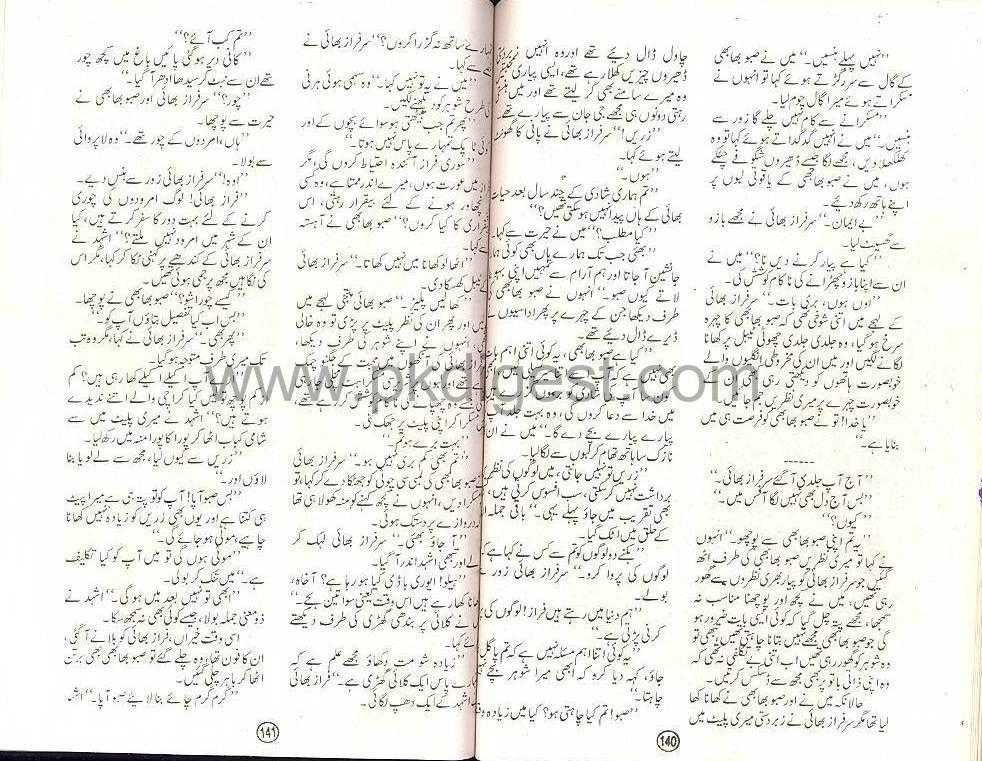 ”نہیں پہلے ہنسیں۔“ میں نے صبو بھابھی
کے گال سے سر رگڑتے ہوئے کہا تو انہوں نے
مسکراتے ہوئے میرا گال چوم لیا۔
”مسکرانے سے کام نہیں چلے گا زور سے
ہنسیں۔“ میں نے انہیں گدگداتے ہوئے کہا تو وہ
کھلکھلا دیں، مجھے لگا جیسے ڈھیروں شگوفے چٹکے
ہوں، میں نے صبو بھابھی کے یاقوتی لبوں پر
اپنے ہاتھ رکھ دیئے۔
”بے ایمان۔“ سرفراز بھائی نے مجھے بازو
سے گھسیٹ لیا۔
”کیا ہے پیار کرنے دیں نا؟“ میں نے
ان سے اپنا بازو چھڑانے کی ناکام کوشش کی۔
”اوں ہوں، بری بات۔“ سرفراز بھائی
کے لہجے میں اتنی شوخی تھی کہ صبو بھابھی کا چہرہ
سرخ ہو گیا، وہ جلدی جلدی چھوٹی ٹیبل پر کھانا
لگانے لگیں اور میں ان کی مخروطی انگلیوں والے
خوبصورت ہاتھوں کو دیکھتی رہی
خوبصورت چہرے پر میری نظریں جم
”یا خدا! تو نے صبو بھابھی کو فرصت ہی میں
بنایا ہے۔“
------
”آج آپ جلدی آ گئے سرفراز بھائی۔“
”بس آج دل بھی نہیں لگا آفس میں۔“
”کیوں؟“
”یہ تم اپنی صبو بھابھی سے پوچھو۔“ انہوں
نے کہا تو میری نظریں صبو بھابھی کی طرف اٹھ
گئیں جو سرفراز بھائی کو پیار بھری نظروں سے گھور
رہی تھیں، میں نے کچھ اور پوچھنا مناسب نہ
سمجھا، مجھے پتہ چل گیا کہ کوئی ایسی بات ضرور ہو
گی جو صبو بھابھی مجھے نہیں بتانا چاہتی تھیں، جبھی تو
وہ شوہر کو گھور رہی تھیں اب اتنی بے تکلفی نہ تھی کہ
وہ اپنی ذاتی باتوں پر بھی مجھ سے ڈسکس کرتیں۔
حالانکہ میں نے اور صبو بھابھی نے کھانا کھا
لیا تھا مگر سرفراز بھائی نے زبردستی میری پلیٹ میں
چاول ڈال دیئے تھے اور وہ انہیں زبردستی
ڈھیروں چیزیں کھلا رہے تھے، ایسی پیاری
وہ میرے سامنے بھی کر لیتے تھے اور میں
رہتی دونوں ہی مجھے جی جان سے پیارے تھے۔
”زریں!“ سرفراز بھائی نے پانی کا گھونٹ
لیتے ہوئے کہا۔
”ہوں۔“
”تم ہماری شادی کے چند سال بعد حیات
بھائی کے ہاں پیدا نہیں ہو سکتی تھیں؟“
”کیا مطلب؟“ میں نے حیرت سے کہا۔
”بھئی جب تک ہمارے ہاں بھی کوئی ہمارا
جانشین آ جاتا اور ہم آرام سے تمہیں اپنی بہو
لاتے کیوں صبو۔“ انہوں نے صبو بھابھی کی
طرف دیکھا جن کے چہرے پر پھر اداسیوں
ڈیرے ڈال دیئے تھے۔
”کیا ہے صبو بھابھی، یہ کوئی اتنی اہم بات
میں خدا سے دعا کروں گی، وہ بہت
پیارے پیارے بچے دے گا۔“ میں نے ان
نازک سا ہاتھ تھام کر لبوں سے لگا لیا۔
”زریں تم نہیں جانتی، میں لوگوں کی نظریں
برداشت نہیں کر سکتی، سب افسوس کرتی ہیں،
بھی تقریب میں جاؤ پہلے یہی۔“ باقی جملہ ان
کے حلق میں اٹک گیا۔
”بکنے دو لوگوں کو تم سے کس نے کہا ہے
لوگوں کی پروا کرو۔“ سرفراز بھائی زور سے
بولے۔
”ہم دنیا میں رہتے ہیں فراز! لوگوں کی
کرنی پڑتی ہے۔“
”یہ کوئی اتنا اہم مسئلہ نہیں ہے کہ تم پاگل
جاؤ، کہہ دیا کرو کہ ابھی میرا شوہر بچے نہیں
چاہتا۔“
”صبو! تم کیا چاہتی ہو؟ کیا میں زیادہ وقت
140
تمہارے ساتھ نہ گزارا کروں؟“ سرفراز بھائی نے
سے کہا۔
”میں نے یہ تو نہیں کہا۔“ وہ سہمی ہوئی ہرنی
کی طرح شوہر کو دیکھنے لگیں۔
”پھر تم جب بیٹھتی ہو سوائے بچوں کے اور
کوئی ٹاپک تمہارے پاس نہیں ہوتا۔“
”سوری فراز آئندہ احتیاط کروں گی، مگر
فراز میں عورت ہوں، میرے اندر ممتا ہے، وہ کسی
نچھاور ہونے کے لئے بیقرار رہتی، اس
بیقراری کا کیا کروں؟“ صبو بھابھی نے آہستہ
کہا۔
”اٹھا لو کھانا میں نہیں کھاتا۔“ سرفراز بھائی
نے ٹیبل کھسکا دی۔
”کھا لیں پلیز۔“ صبو بھابھی ملتجی لہجے میں
اور پھر ان کی نظر پلیٹ پر پڑی تو وہ خالی
انہوں نے اپنے شوہر کی طرف دیکھا،
کر اپنی پلیٹ پر جھک گئی۔
”بہت برے ہو تم۔“
”تم بھی کم بری نہیں ہو۔“ سرفراز بھائی
صبو بھابھی کی لمبی سی چوٹی کو جھٹکا دے کر کہا، تو
مسکرا دیں، انہوں نے کچھ کہنے کو منہ کھولا ہی تھا
دروازے پر دستک ہوئی۔
”آ جاؤ بھئی۔“ سرفراز بھائی لہک کر
بولے اور تبھی اشہد اندر آ گیا۔
”ہیلو! ایوری باڈی کیا ہو رہا ہے؟ آخاہ،
کھانا کھا رہے ہیں اس وقت یعنی سوا تین بجے۔“
نے کلائی پر بندھی گھڑی کی طرف دیکھتے
ہوئے کہا۔
”زیادہ شو مت دکھاؤ مجھے علم ہے کہ
تمہارے پاس ایک کلائی گھڑی ہے۔“ فراز بھائی
اشہد کے ایک دھپ لگائی۔
”تم کب آئے؟“
”کافی دیر ہو گئی پائیں باغ میں کچھ چور
تھے ان سے نبٹ کر سیدھا ادھر آ گیا۔“
”چور؟“ سرفراز بھائی اور صبو بھابھی نے
حیرت سے پوچھا۔
”ہاں، امردوں کے چور تھے۔“ وہ لاپروائی
سے بولا۔
”اوہ!“ سرفراز بھائی زور سے ہنس دیئے۔
”فراز بھائی! لوگ امرودوں کی چوری
کرنے کے لئے بہت دور کا سفر کرتے ہیں، کیا
ان کے شہر میں امرود نہیں ملتے؟“ اشہد نے
سرفراز بھائی کے کندھے پر کہنی ٹکا کر کہا، مگر اس
کی نگاہیں مجھ پر جمی ہوئی تھیں۔
”کیسے چور اشو؟“ صبو بھابھی نے پوچھا۔
”بس اب کیا تفصیل بتاؤں آپ کو۔“
”پھر بھی۔“ سرفراز بھائی نے کہا، مگر وہ تب
تک میری طرف متوجہ ہو گیا۔
آپ اکیلے اکیلے کھا رہی ہیں؟ کم
کیا کراچی والے اتنے ندیدے
ہوتے ہیں؟“ اشہد نے میری پلیٹ میں سے
شامی کباب اٹھا کر پورا کا پورا منہ میں رکھ لیا۔
”زریں سے کیوں لیا، مجھ سے لے لو یا بنا
لاؤں اور۔“
”بس صبو آپا! آپ کو تو پتہ ہی ہے میرا پیٹ
ہی کتنا ہے اور یوں بھی زریں کو زیادہ نہیں کھانا
چاہیے، موٹی ہو جائے گی۔“
”موٹی ہوں گی تو میں آپ کو کیا تکلیف
ہے۔“ میں تنک کر بولی۔
”ابھی تو نہیں بعد میں ہو گی۔“ اشہد نے
ذومعنی جملہ بولا، جسے کوئی بھی نہ سمجھ سکا۔
اسی وقت خیراں، فراز بھائی کو بلانے آ گئی،
ان کا فون تھا، وہ چلے گئے تو صبو بھابھی بھی برتن
اٹھا کر باہر چلی گئیں۔
”گرم گرم چائے بنا لایئے صبو آپا۔“ اشہد
141
www.pkdigest.com